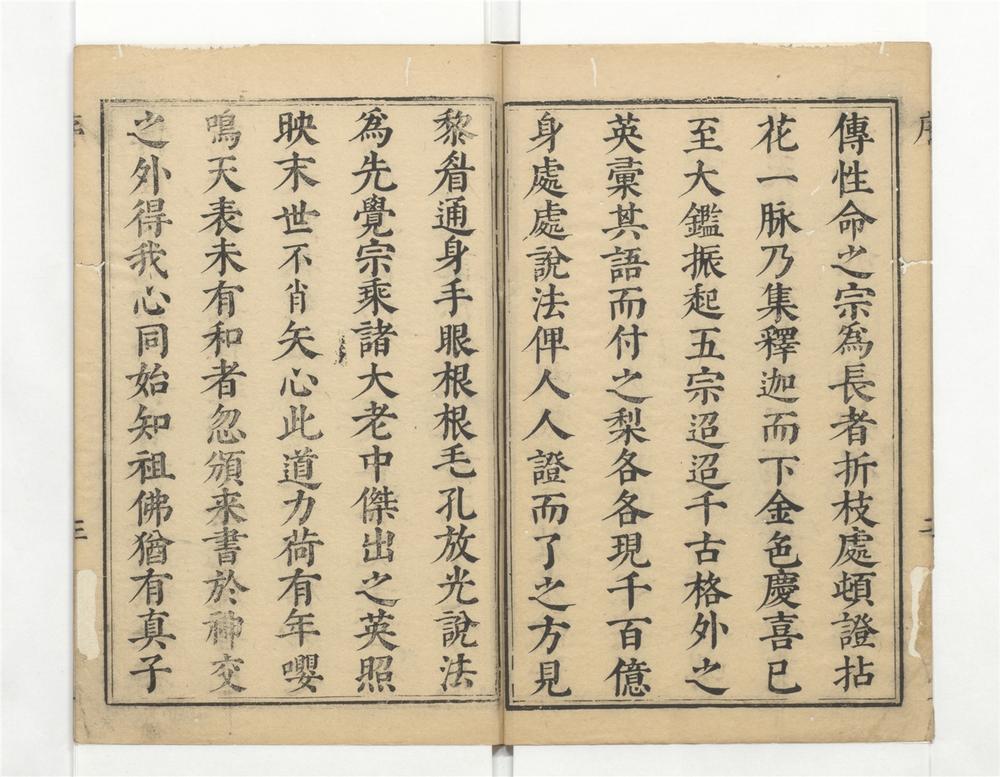 傳性命之宗為長者折枝處頓證拈
花一脉乃集釋迦而下金色慶喜已
至大鑑振起五宗迢迢千古格外之
英彙其語而付之梨各各現千百億
身處處說法俾人人證而了之方見
黎眷通身手眼根根毛孔放光說法
為先覺宗乘諸大老中傑出之英照
映末世不肖矢心此道力荷有年嚶
鳴天表未有和者忽頒来書於神交
之外得我心同始知祖佛猶有真子
序
二
三